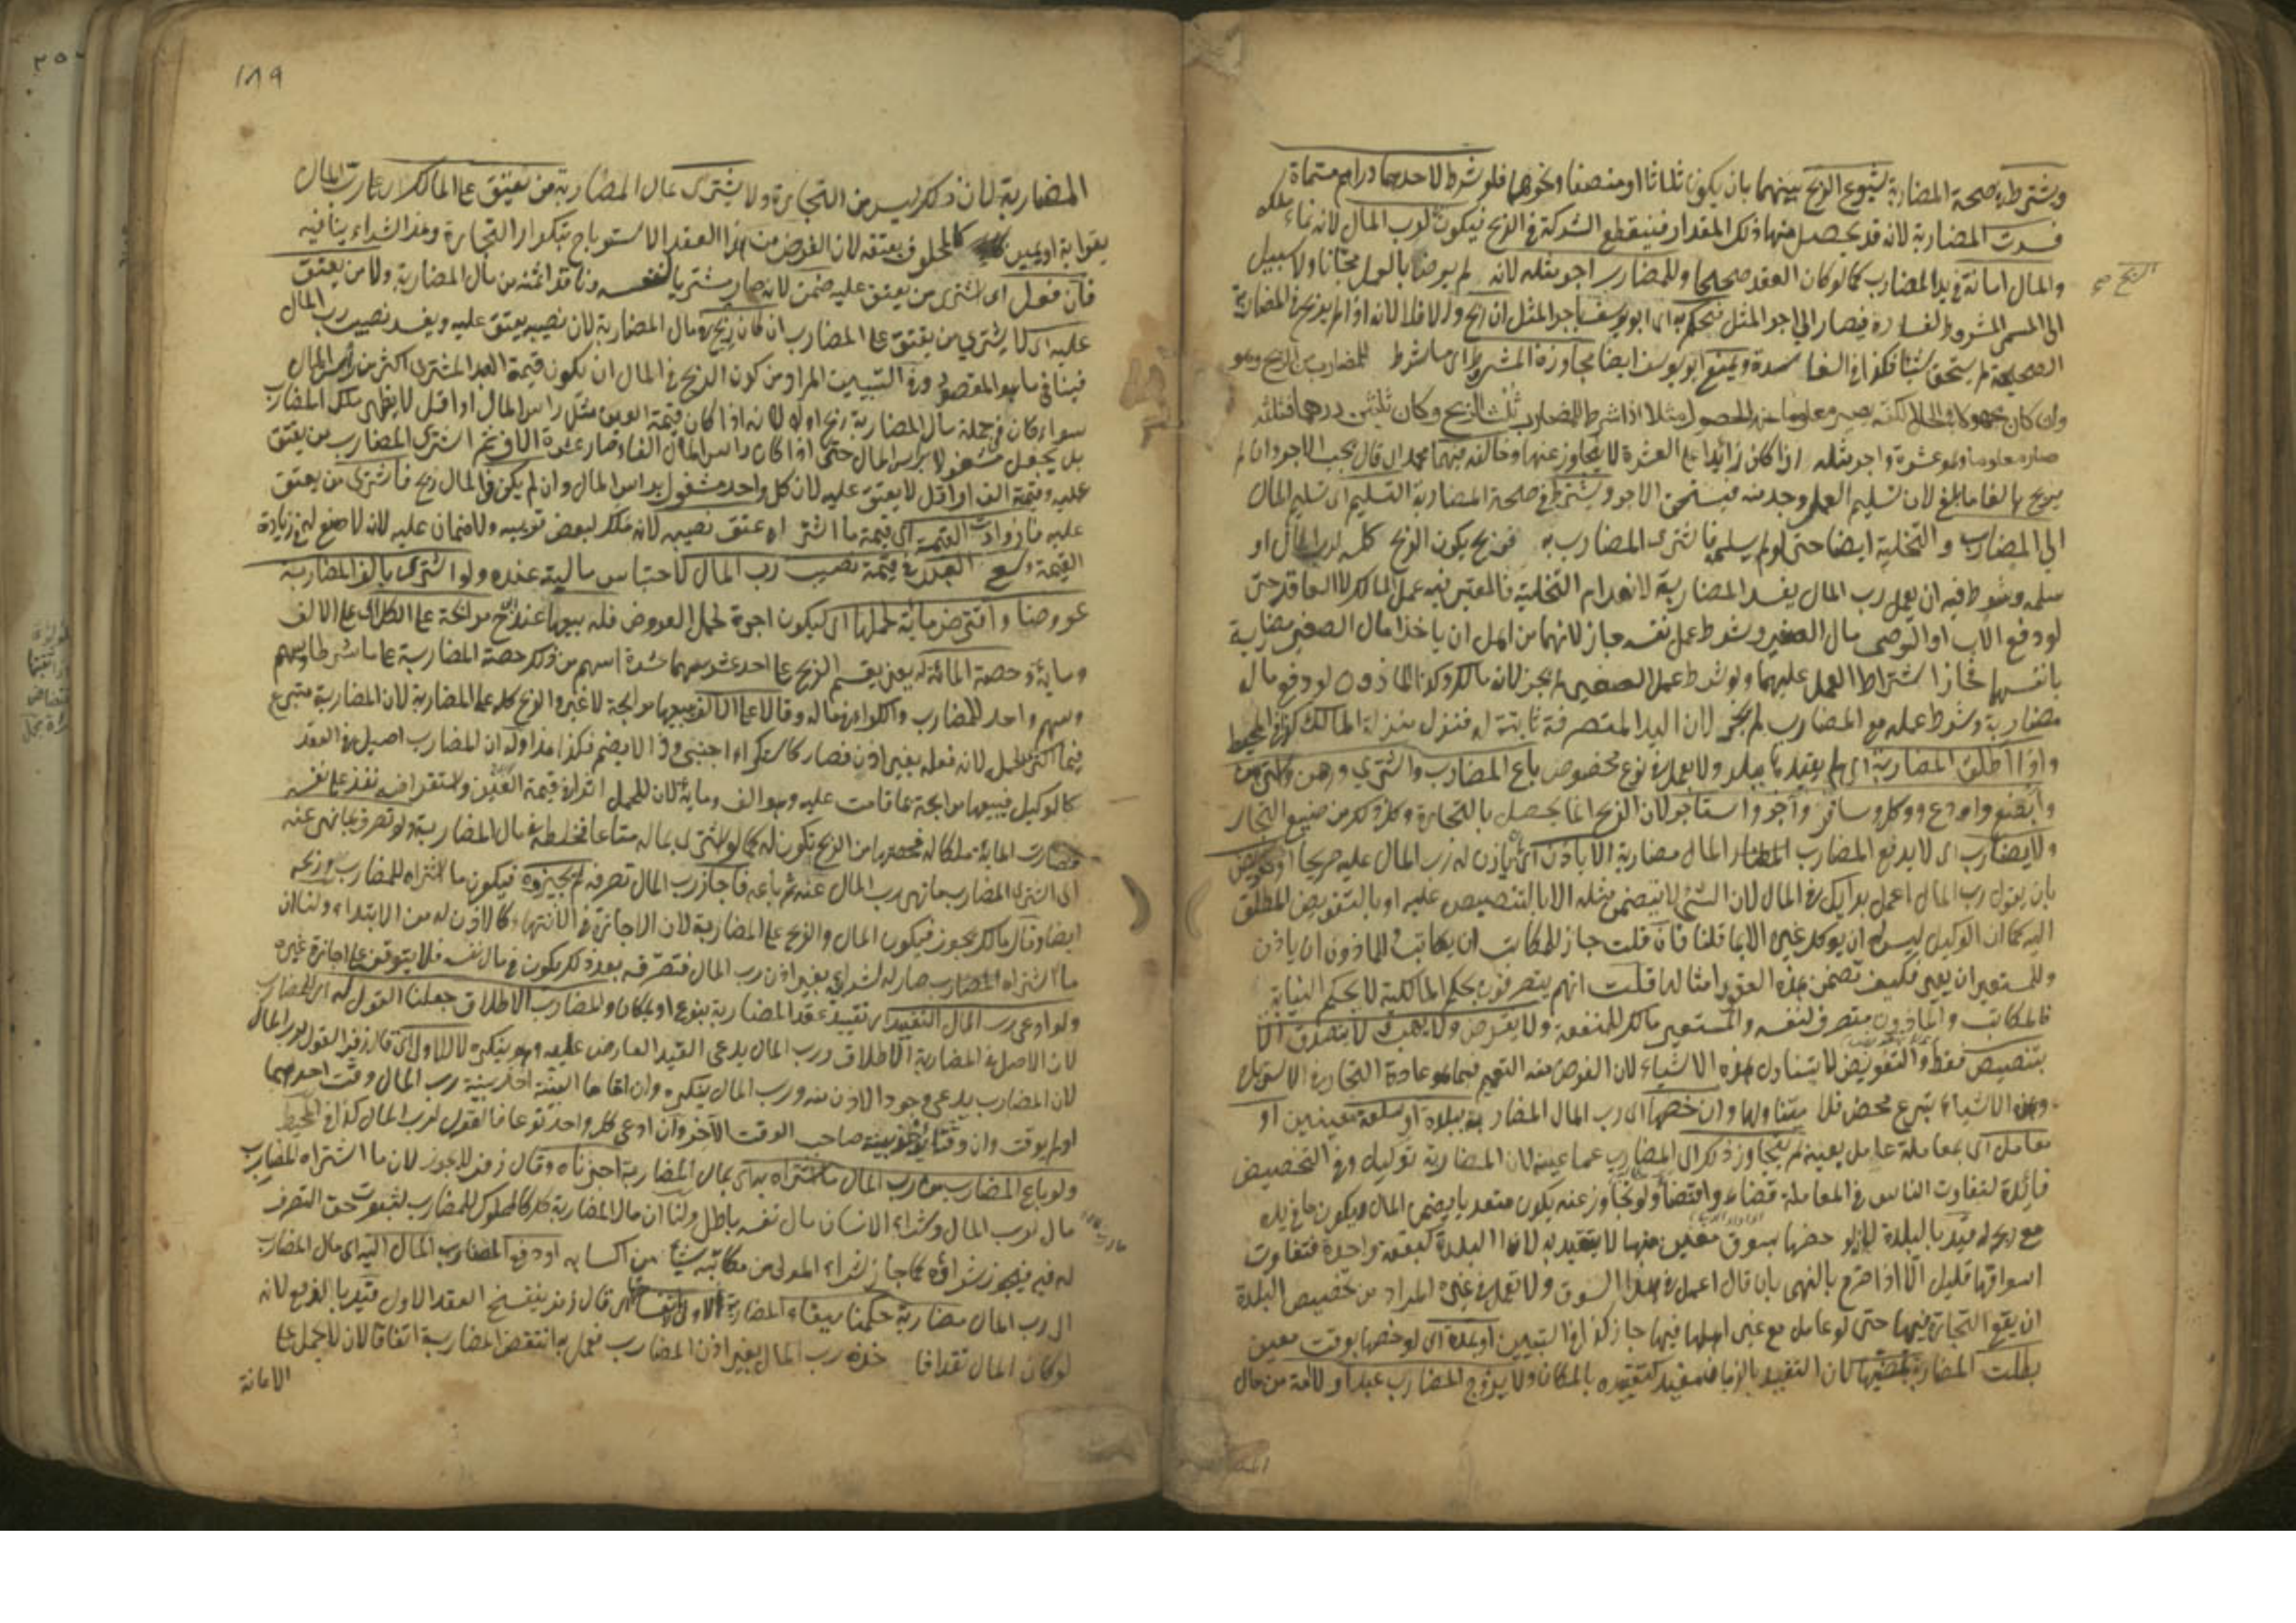 ويشترط في صحة المضاربة شيوع الربح بينهما بان يكون ثلاثا او منصفا ونحوهما فلو شرط لاحدهما دراهم مسماة
فسدت المضاربة لانه قد يحصل منها ذلك المقدار فينقطع الشركة في الربح فيكون لرب المال لانه نماء ملكه
والمال امانة في يد المضارب كما لو كان العقد صحيحا وللمضارب اجر مثله لانه لم يرض بالعمل مجانا ولا سبيل
الربح صح
الى المسمى المشروط لفساده فيصار الى اجر المثل فيحكم به اى ابو يوسف باجر المثل ان ربح ولا فلا لانه اذا لم يربح في المضاربة
الصحيحة لم يستحق شيئا فكذا في الفاسدة ويمنع ابو يوسف ايضا مجاوزة المشروط اى ما شرط للمضارب من الربح وهو
وان كان مجهولا في الحال لكنه يصير معلوما عند الحصول مثلا اذا شرط للمضارب ثلث الربح وكان ثلثين درهما فثلثه
صار معلوما وهو عشرة واجر مثله اذا كان زائدا على العشرة لا يتجاوز عنها وخالفه فيهما محمد اى قال يجب الاجر وان لم
يربح بالغا ما بلغ لان تسليم العمل وجد منه فيستحق الاجر ويشترط في صحة المضاربة التسليم اى تسليم المال
الى المضارب والتخلية ايضا حتى لو لم يسلمه فاشترى المضارب به فربح يكون الربح كله لرب المال او
سلمه وشرط فيه ان يعمل رب المال يفسد المضاربة لانعدام التخلية فالمعتبر فيه عمل المالك لا العاقد حتى
لو دفع الاب او الوصى مال الصغير وشرط عمل نفسه جاز لانهما من اهل ان ياخذا مال الصغير مضاربة
بانفسهما فجاز اشتراط العمل عليهما ولو شرط عمل الصغير لم يجز لانه مالك وكذا الماذون لو دفع مال
مضاربة وشرط عمله مع المضارب لم يجز لان اليد المتصرفة ثابتة له فنزل منزلة المالك كذا في المحيط
واذا اطلق المضاربة اى لم يقيدها ببلد ولا بعمل في نوع مخصوص باع المضارب واشترى ورهن وارتهن
وابضع واودع ووكل وسافر وآجر واستاجر لان الربح انما يحصل بالتجارة وكل ذلك من صنيع التجار
ولا يضارب اى لا يدفع المضارب المال مضاربة الا باذن اى باذن له رب المال عليه صريحا او تفويض
بان يقول رب المال اعمل برايك في المال لان الشئ لا يتضمن مثله الا بالتنصيص عليه او بالتفويض المطلق
اليه كما ان الوكيل ليس له ان يوكل غيره الا بما قلنا فان قلت جاز للمكاتب ان يكاتب والماذون ان ياذن
وللمستعير ان يعير فكيف تضمن هذه العقود امثالها قلت انهم يتصرفون بحكم المالكية لا بحكم النيابة
فالمكاتب والماذون متصرف لنفسه والمستعير مالك للمنفعة ولا يقرض ولا يهب ولا يتصدق الا
بتنصيص فقط والتفويض لا يتناول هذه الاشياء لان الغرض منه التعميم فيما هو عادة التجارة الاسترباح
وهذه الاشياء تبرع محض فلا يتناولها وان خصها اى رب المال المضاربة ببلدة او سلعة معينين او
معامل اى بمعاملة عامل بعينه لم يتجاوز ذلك اى المضارب عما عينه لان المضاربة توكيل وفي التخصيص
فائدة لتفاوت الناس في المعاملة قضاء واقتضاء ولو تجاوز عنه يكون متعديا يضمن المال ويكون ما في يده
مع ربحه له قيد بالبلدة لانه لو خصها بسوق معين منها لا يتقيد به لان البلدة كبقعة واحدة فتفاوت
اسواقها قليل الا اذا صرح بالنهى بان قال اعمل في هذا السوق ولا تعمل في غيره المراد من تخصيص البلدة
ان يقع التجارة فيها حتى لو عامل مع غير اهلها فيها جاز كذا في التبيين او مدة اى لو خصها بوقت معين
بطلت المضاربة بمضيها لان التقييد بالزمان مفيد كتقييده بالمكان ولا يزوج المضارب عبدا ولا امة من مال
١٨٩
المضاربة لان ذلك ليس من التجارة ولا يشترى بمال المضاربة من يعتق على المالك اى على رب المال
بقرابة او يمين كالمحلوف بعتقه لان الغرض من هذا العقد الاسترباح بتكرار التجارة وهذا الشراء ينافيه
فان فعل اى اشترى من يعتق عليه ضمن لانه صار مشتريا لنفسه وناقدا ثمنه من مال المضاربة ولا من يعتق
عليه اى لا يشترى من يعتق على المضارب ان كان ربح في مال المضاربة لان نصيبه يعتق عليه ويفسد نصيب رب المال
فينافي ما هو المقصود وفي التبيين المراد من كون الربح في المال ان يكون قيمة العبد المشترى اكثر من راس المال
سواء كان في جملة مال المضاربة ربح او لا لانه اذا كان قيمة العبد مثل راس المال او اقل لا يظهر ملك المضارب
بل يجعل مشغولا براس المال حتى اذا كان راس المال الفا فصار عشرة الاف ثم اشترى المضارب من يعتق
عليه وقيمته الف او اقل لا يعتق عليه لان كل واحد مشغول براس المال وان لم يكن في المال ربح فاشترى من يعتق
عليه فازدادت القيمة اى قيمة ما اشتراه عتق نصيبه لانه ملك لبعض قريبه ولا ضمان عليه لانه لا صنع له في زيادة
القيمة وسعى العبد في قيمة نصيب رب المال لاحتباس ماليته عنده ولو اشترى بالف المضاربة
عروضا واقترض مائة لحملها اى ليكون اجرة لحمل العروض فله بيعها عند ح مرابحة على الكل اى على الالف
ومائة وحصة المائة له يعنى يقسم الربح على احد عشر سهما عشرة اسهم من ذلك حصة المضاربة على ما شرطا وسهم
وسهم واحد للمضارب والكل امرتهنا له وقالا على الالف يبيعها مرابحة لا غير والربح كله على المضاربة لان المضاربة متبرع
فيما اكترى للحمل لانه فعله بغير اذن فصار كاستكراء اجنبى وذا لا يضم فكذا هذا وله ان المضارب اصيل في العقد
كالوكيل فيبيعها مرابحة بما قامت عليه وهو الف ومائة لان للحمل اثرا في قيمة العين واستقراضه نفذ على نفسه
فصارت المائة ملكا له فحصتها من الربح تكون له كما لو اشترى بماله متاعا فخلطه في مال المضاربة ولو تصرف بما نهى عنه
اى اشترى المضارب ما نهى رب المال عنه ثم باعه فاجاز رب المال تصرفه لم يجيزوه فيكون ما اشتراه للمضارب وربحه
ايضا وقال مالك يجوز فيكون المال والربح على المضاربة لان الاجازة في الانتهاء كالاذن له من الابتداء ولنا ان
ما اشتراه المضارب صار له لشرائه بغير اذن رب المال فتصرفه بعد ذلك يكون في مال نفسه فلا يتوقف على اجازة غيره
ولو ادعى رب المال التقييد اى تقييد عقد المضاربة بنوع او بمكان والمضارب الاطلاق جعلنا القول له اى للمضارب
لان الاصل في المضاربة الاطلاق ورب المال يدعى القيد العارض عليه وهو ينكره لا للاول اى قال زفر القول لرب المال
لان المضارب يدعى وجود الاذن منه ورب المال ينكره وان اقاما البينة اخذ ببينة رب المال وقت احدهما
او لم يوقت وان وقتا يؤخذ ببينة صاحب الوقت الآخر وان ادعى كل واحد نوعا فالقول لرب المال كذا في المحيط
ولو باع المضارب من رب المال ما اشتراه به اى بمال المضاربة اجزناه وقال زفر لا يجوز لان ما اشتراه المضارب
مال لرب المال وشراء الانسان مال نفسه باطل ولنا ان مال المضاربة كالمملوك للمضارب لثبوت حق التصرف
له فيه فيجوز شراؤه كما جاز شراء المولى من مكاتبه شيئا من اكسابه او دفع المضارب المال اليه اى مال المضاربة
الى رب المال مضاربة حكمنا ببقاء المضاربة الاولى لا بفسخها اى قال زفر ينفسخ العقد الاول قيد بالدفع لانه
لو كان المال نقدا فاخذه رب المال بغير اذن المضارب فعمل به انتقض المضاربة اتفاقا لان لا يحمل على
الامانة